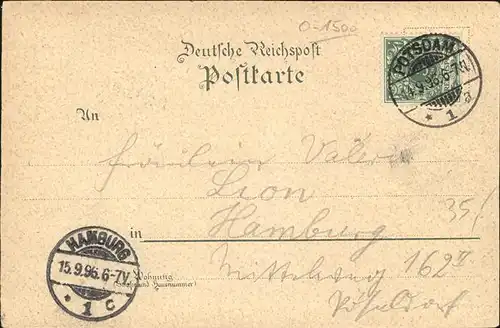 O-1500
Deutsche Reichspost
Postkarte
POTSDAM
9.96.6-7V
* 1 a
An
Fräulein Valerie
Lion
in Hamburg
35/
Mittelweg 162 II
Pöseldorf
Wohnung
(Straße und Hausnummer)
HAMBURG
15.9.96.6-7V
* 1 c